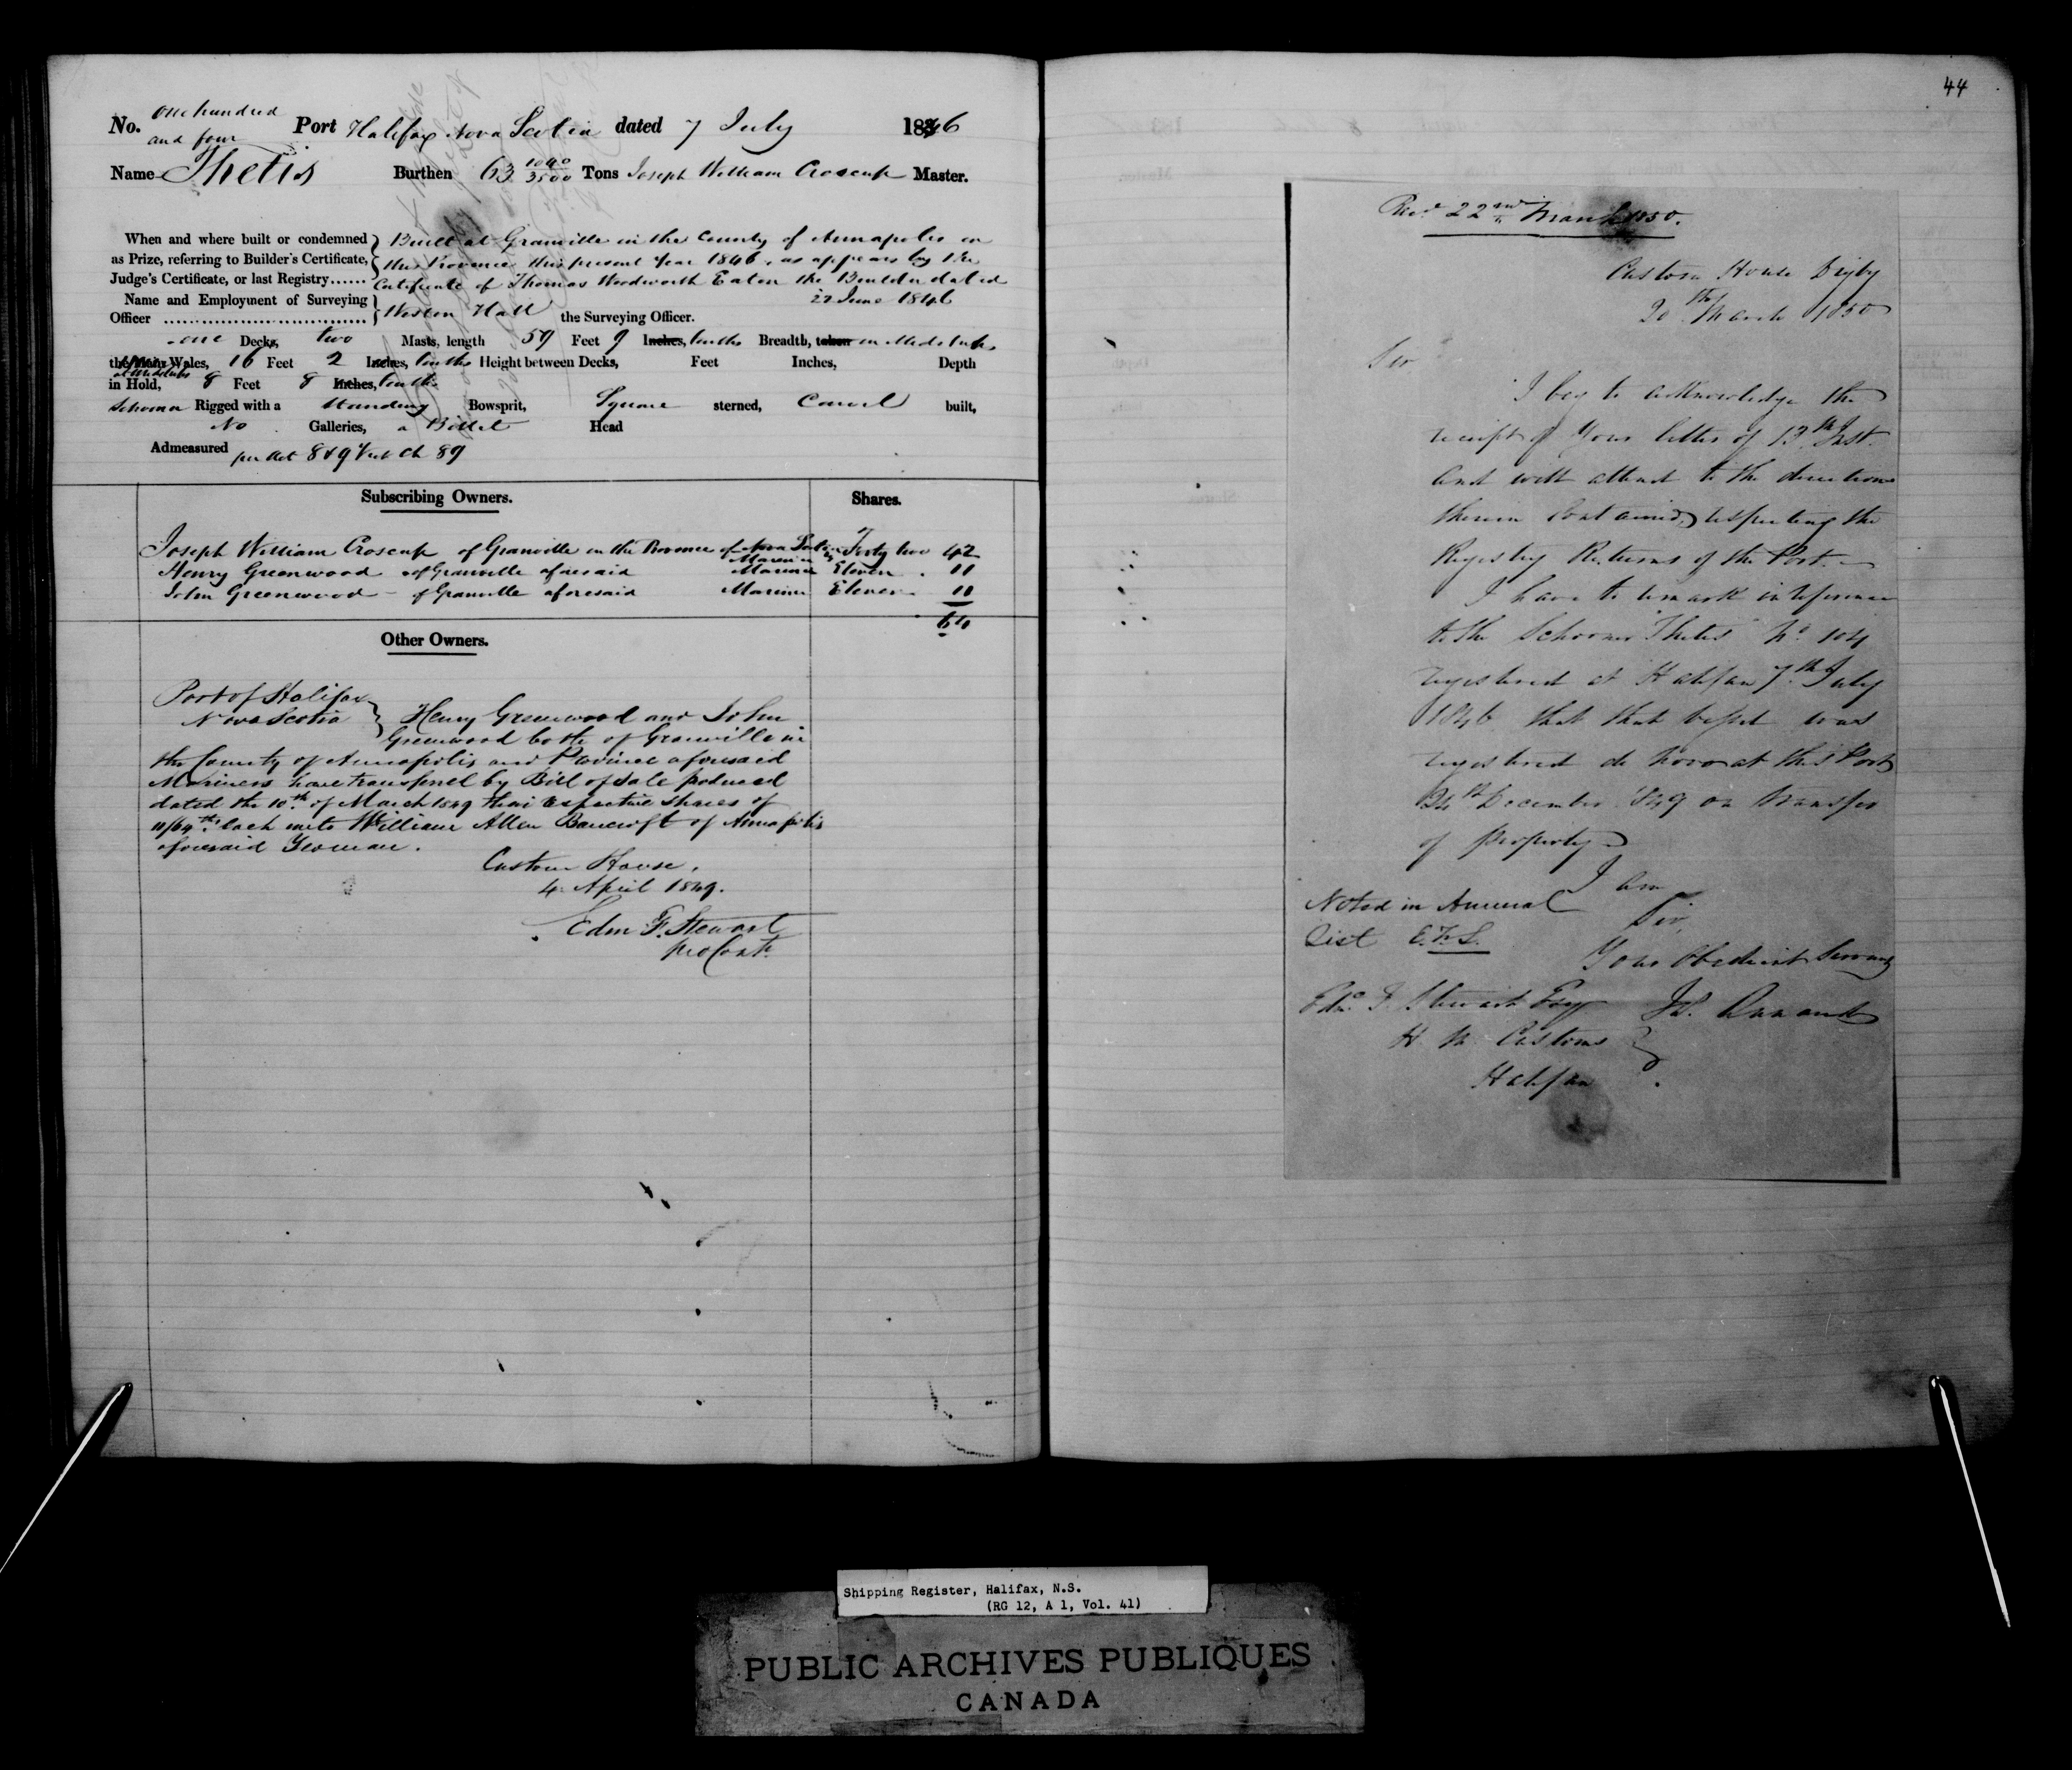 No. one hundred and four Port Halifax Nova Scotia dated 7 July 1846
Name Thetis Burthen 63 1090/3500 Tons Joseph William Croscup Master.
When and where built or condemned as Prize, referring to Builder's Certificate, Judge's Certificate, or last Registry......
Built at Granville in the County of Annapolis in
this Province this present Year 1846, as appears by the
Certificate of Thomas Woodworth Eaton the Builder dated
27 June 1846
Name and Employment of Surveying Officer
Weston Hall the Surveying Officer.
one Decks, two Masts, length 59 Feet 9 Inches, tenths Breadth, taken in Midships
the Main Wales, 16 Feet 2 Inches, tenths Height between Decks, Feet Inches, Depth
in Hold, at Midships 8 Feet 8 Inches, tenths
Schooner Rigged with a Standing Bowsprit, Square sterned, Carvel built,
No Galleries, a Billet Head
Admeasured per Act 8 & 9 Vict Ch 89
Subscribing Owners. Shares.
Joseph William Croscup of Granville in the Province of Nova Scotia Mariner Forty two 42
Henry Greenwood of Granville aforesaid Mariner Eleven 11
John Greenwood of Granville aforesaid Mariner Eleven 11
64
Other Owners.
Port of Halifax
Nova Scotia
Henry Greenwood and John
Greenwood both of Granville in
the County of Annapolis and Province aforesaid
Mariners have transferred by Bill of Sale produced
dated the 10th. of March 1849 their respective shares of
11/64ths. each unto William Allen Bancroft of Annapolis
aforesaid Yeoman.
Custom House,
4 April 1849.
Edm F. Stewart
pro Cont.
44
Recd 22nd March 1850.
Custom House Digby
20th March 1850
Sir
I beg to acknowledge the
receipt of Your letter of 13th Inst.
and will attend to the directions
therein contained, respecting the
Registry Returns of the Port.
I have to remark in reference
to the Schooner "Thetis" No. 104
registered at Halifax 7th July
1846 that that vessel was
registered de novo at this Port
24th December 1849 on transfer
of property
I am
Sir,
Your Obedient Servant
Noted in Annual
List E.F.S.
Edm. F. Stewart Esqr
H M Customs
Halifax
Shipping Register, Halifax, N.S.
(RG 12, A 1, Vol. 41)
PUBLIC ARCHIVES PUBLIQUES
CANADA